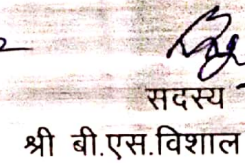 सदस्य
श्री बी.एस.विशाल